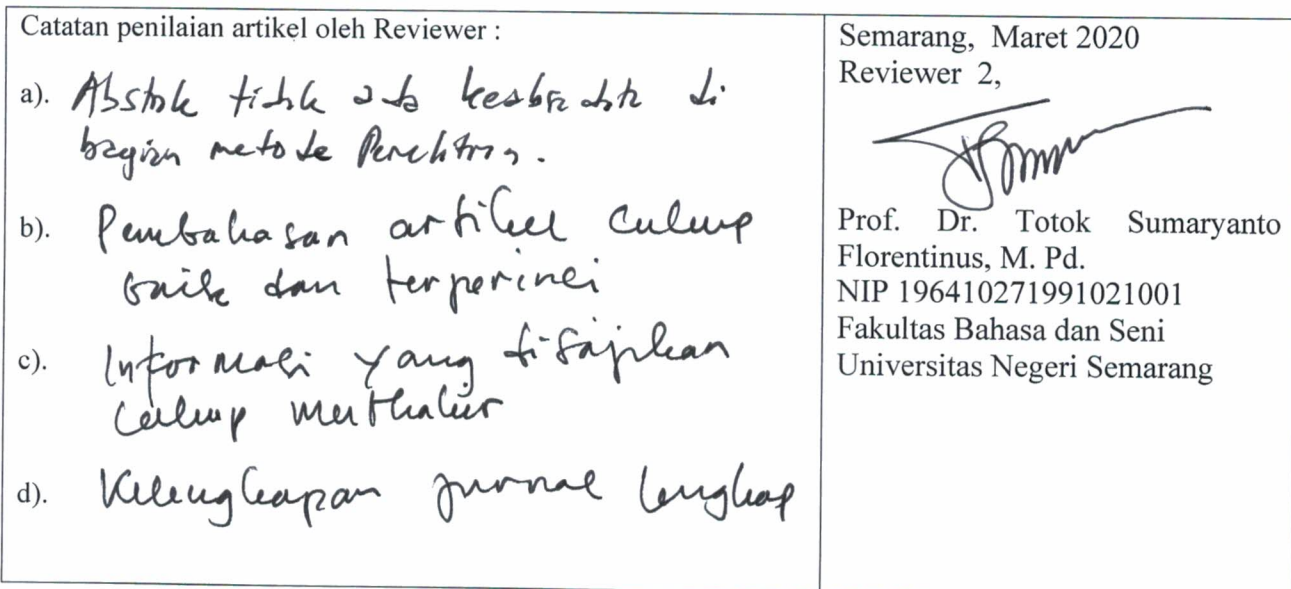 Catatan penilaian artikel oleh Reviewer :
a). Abstrak tidak ada di
bagian metode Penelitian.
b). Pembahasan artikel cukup
baik dan terperinci
c). Informasi yang disajikan
cukup
d). Kelengkapan jurnal lengkap
Semarang, Maret 2020
Reviewer 2,
Prof. Dr. Totok Sumaryanto
Florentinus, M. Pd.
NIP 196410271991021001
Fakultas Bahasa dan Seni
Universitas Negeri Semarang